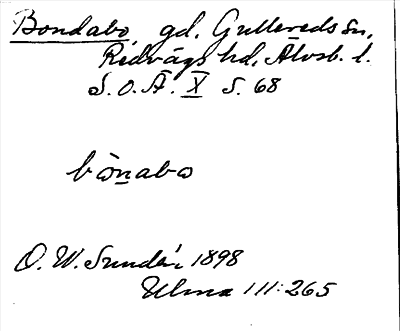 Bondabo, gd, Gullereds sn,
Redvägs hd, Älvsb. l.
S. O. Ä. X S. 68
bònabo
O. W. Sundén 1898
Ulma 111:265